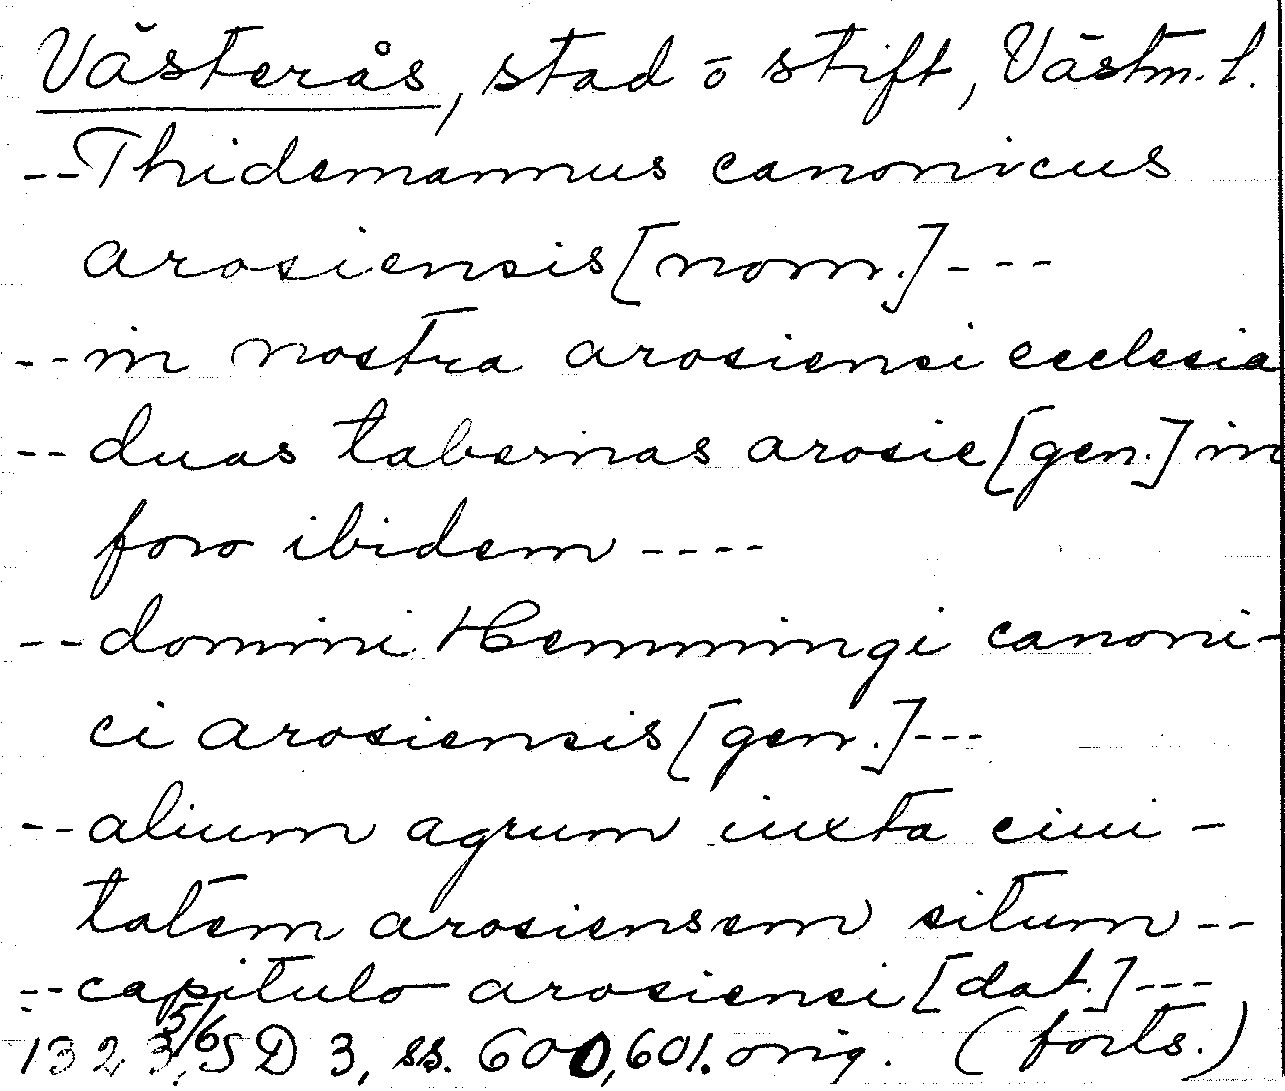 Västerås, stad o stift, Västm. l.
--Thidemannus canonicus
arosiensis [nom.]---
--in nostra arosiensi ecclesia
--duas tabernas arosie [gen.] in
foro ibidem ----
--domini Hemmingi canoni-
ci arosiensis [gen.]---
--alium agrum iuxta ciui-
tatem arosiensem situm --
--capitulo arosiensi [dat.]---
1323 5/6, SD 3, ss. 600, 601. orig. (forts.)